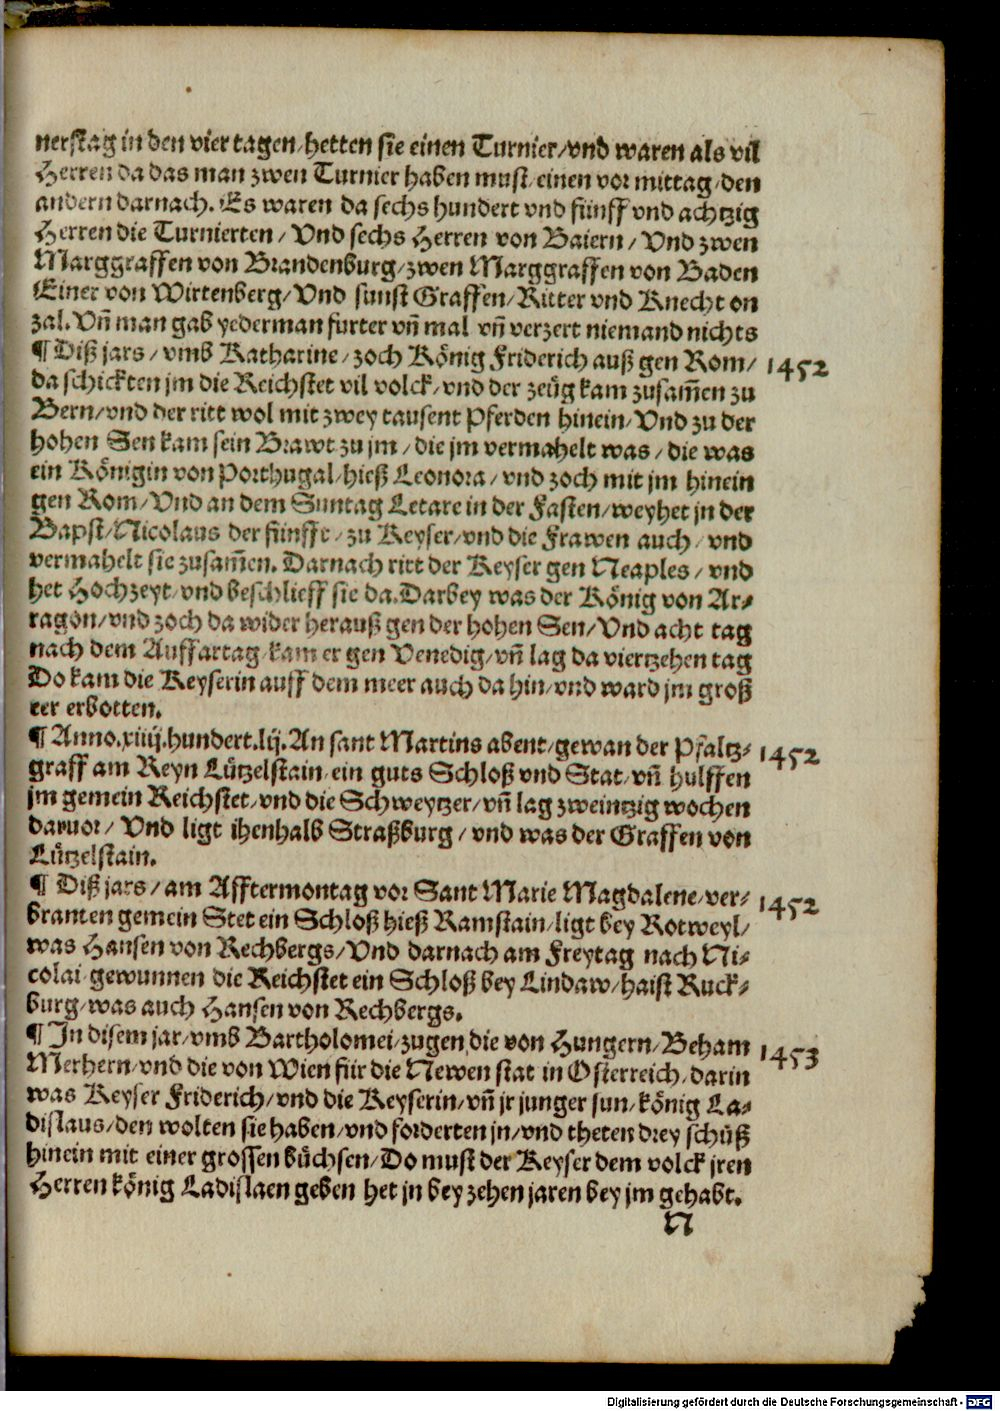 nerstag in den vier tagen/hetten sie einen Turnier/vnd waren als vil
Herren da das man zwen Turnier haben must/einen vor mittag/den
andern darnach. Es waren da sechs hundert vnd fünff vnd achtzig
Herren die Turnierten/ Vnd sechs Herren von Baiern/ Vnd zwen
Marggraffen von Brandenburg/zwen Marggraffen von Baden
Einer von Wirtenberg/Vnd sunst Graffen/Ritter vnd Knecht on
zal. Vñ man gab yederman furter vñ mal vñ verzert niemand nichts
¶ Diß jars/ vmb Katharine/ zoch König Friderich auß gen Rom/ 1452
da schickten jm die Reichstet vil volck/vnd der zeüg kam zusam̃en zu
Bern/vnd der ritt wol mit zwey tausent Pferden hinein/Vnd zu der
hohen Sen kam sein Brawt zu jm/ die jm vermahelt was/ die was
ein Königin von Porthugal/hieß Leonora/ vnd zoch mit jm hinein
gen Rom/Vnd an dem Suntag Letare in der Fasten/weyhet jn der
Bapst/Nicolaus der fünfft/ zu Keyser/vnd die Frawen auch/ vnd
vermahelt sie zusam̃en. Darnach ritt der Keyser gen Neaples/ vnd
het Hochzeyt/vnd beschlieff sie da. Darbey was der König von Ar⸗
ragon/vnd zoch da wider herauß gen der hohen Sen/Vnd acht tag
nach dem Auffartag/kam er gen Venedig/vñ lag da viertzehen tag
Do kam die Keyserin auff dem meer auch da hin/vnd ward jm groß
eer erbotten.
¶ Anno.xiiij.hundert.lij.An sant Martins abent/gewan der Pfaltz⸗ 1452
graff am Reyn Lützelstain/ein guts Schloß vnd Stat/vñ hulffen
jm gemein Reichstet/vnd die Schweytzer/vñ lag zweintzig wochen
daruor/ Vnd ligt ihenhalb Straßburg/ vnd was der Graffen von
Lützelstain.
¶ Diß jars/ am Afftermontag vor Sant Marie Magdalene/ver⸗ 1452
branten gemein Stet ein Schloß hieß Ramstain/ligt bey Rotweyl/
was Hansen von Rechbergs/Vnd darnach am Freytag nach Ni⸗
colai gewunnen die Reichstet ein Schloß bey Lindaw/haist Ruck⸗
burg/was auch Hansen von Rechbergs.
¶ In disem jar/vmb Bartholomei/zugen die von Hungern/Beham 1453
Merhern/vnd die von Wien für die Newen stat in Osterreich/darin
was Keyser Friderich/vnd die Keyserin/vñ jr junger sun/könig La⸗
dislaus/den wolten sie haben/vnd forderten jn/vnd theten drey schüß
hinein mit einer grossen büchsen/Do must der Keyser dem volck jren
Herren könig Ladislaen geben het jn bey zehen jaren bey jm gehabt.
N
Digitalisierung gefördert durch die Deutsche Forschungsgemeinschaft - DFG